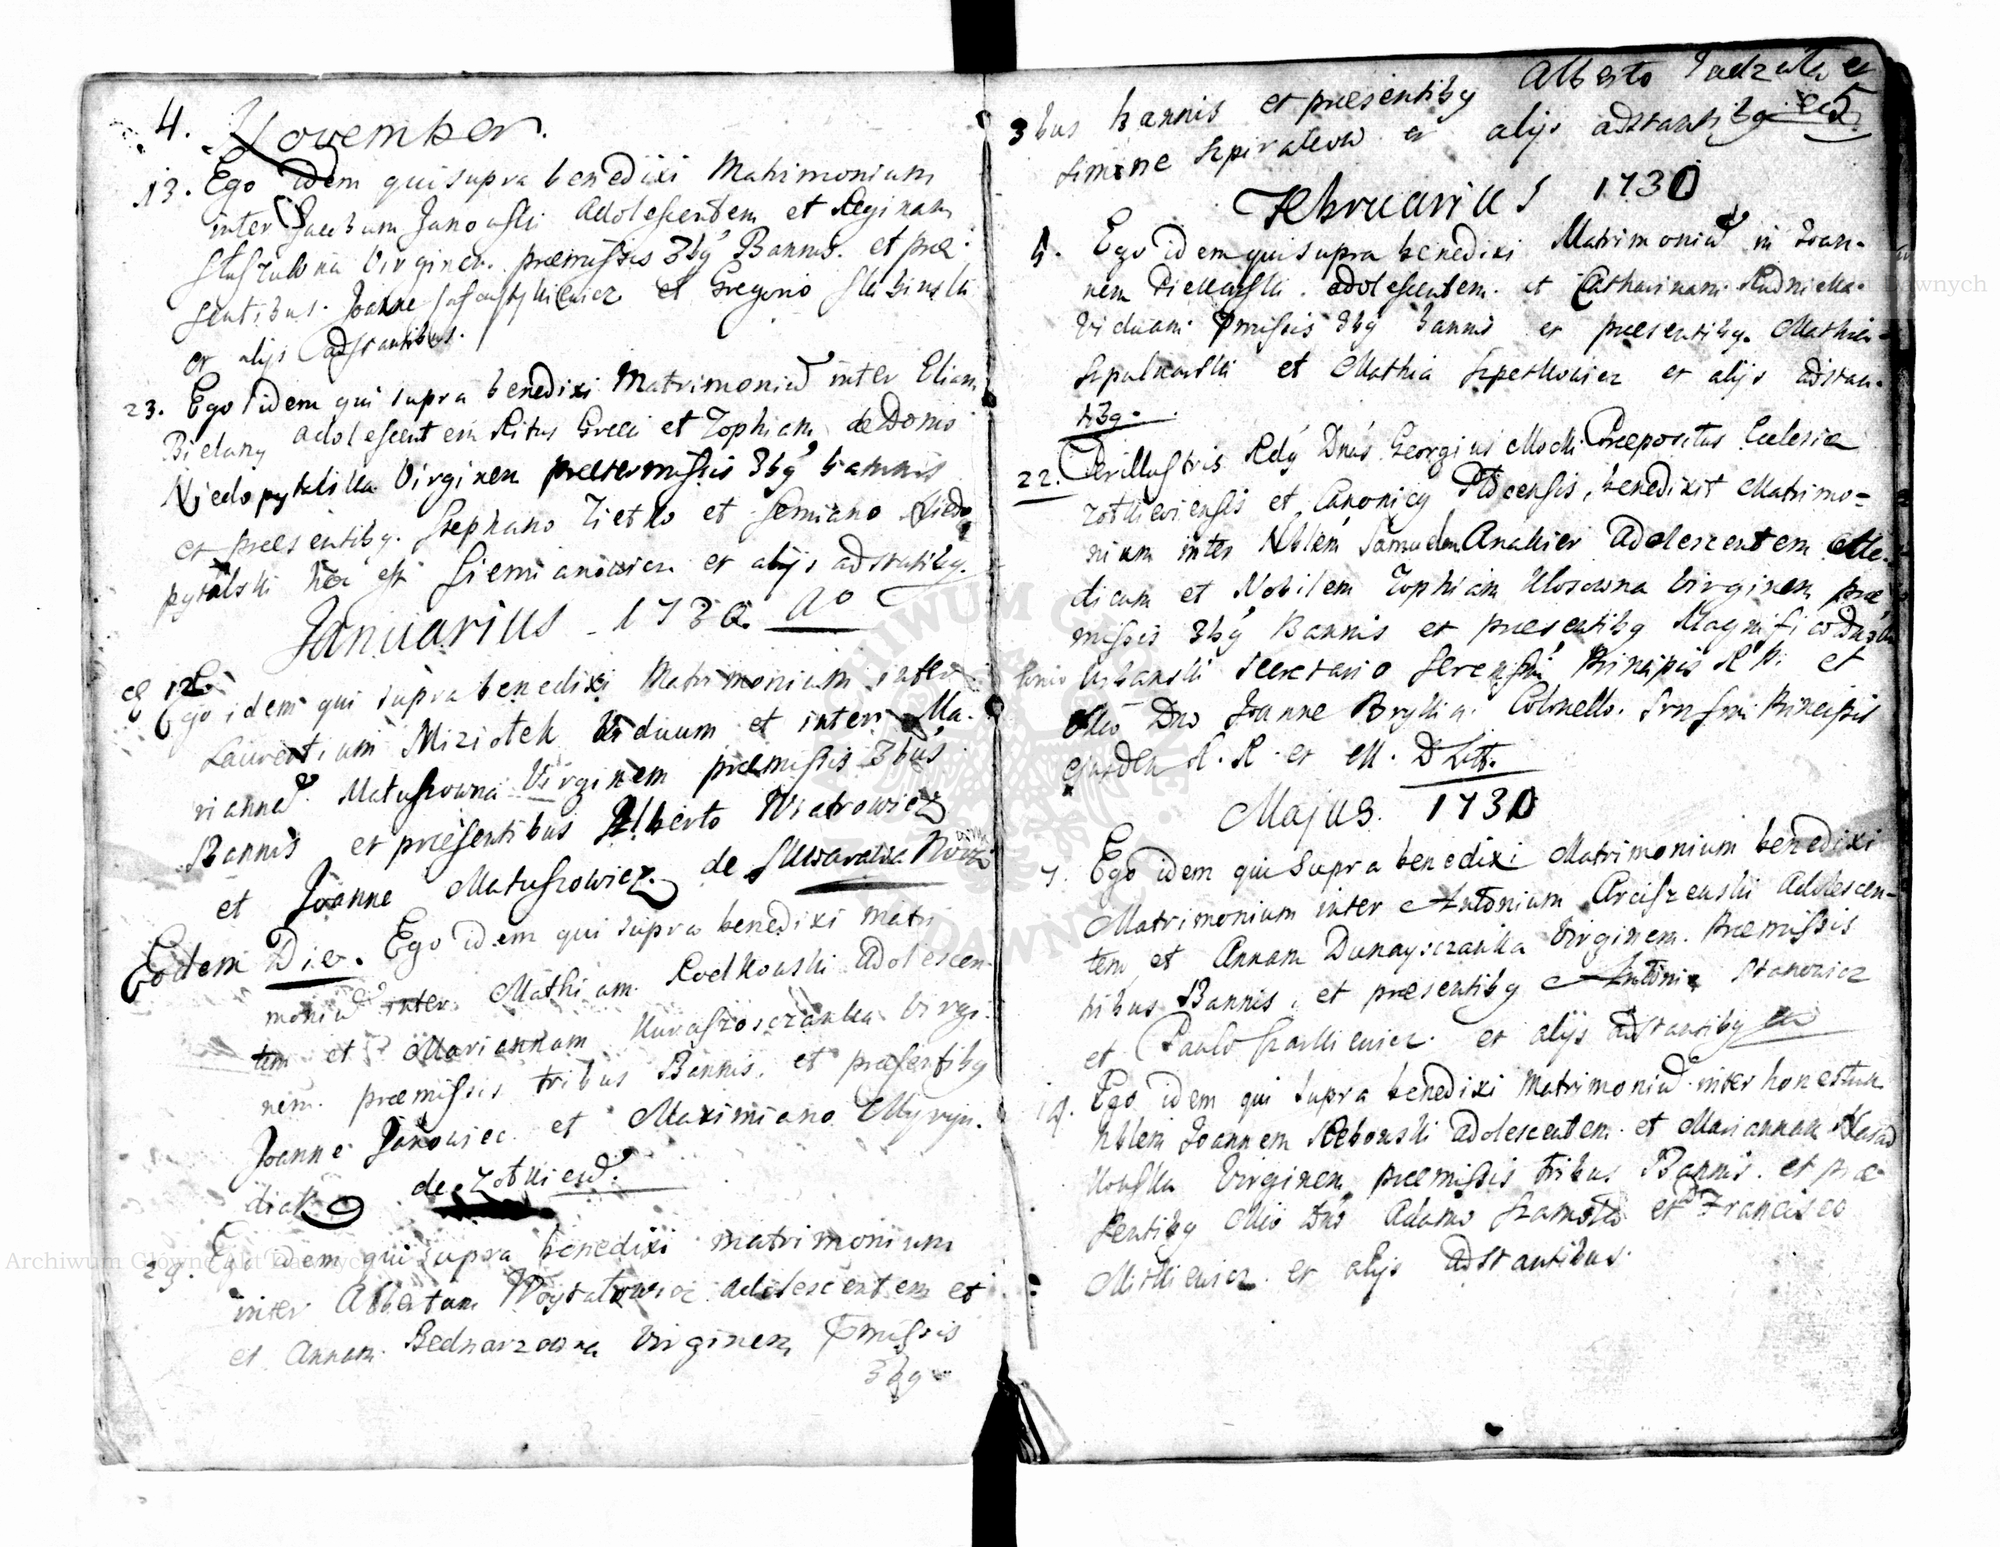 4. November.
13. Ego idem qui supra benedixi Matrimonium
inter Jacobum Janouski Adolescentem et Reginam
Virginem praemissis 3bq Bannis. et prae:
sentibus. Joanne et Gregorio
et alijs adstantibus.
23. Ego idem qui supra benedixi Matrimoniu inter Eliam
Bielany adolescentem Ritus Graeci et Zophiam de Domo
Niedopytalska Virginem praetermissis 3bq bannis
et praesentibq. Stephano Zietko et Semiano Niedo
pytalski hoc est Siemianowicz et alijs adstatibq.
Januarius 1730. Ao
Ego idem qui supra benedixi Matrimonium inter
Laurentium Miziolek Viduum et inter Ma.
rianna Matussowna Virginem praemissis 3bus
Bannis et praesentibus Alberto Wiatrowicz
et Joanne Matussowicz. de
Eodem Die. Ego idem qui supra benedixi matri
moniu inter Mathiam Rodkouski adolescen
tem et Mariannam Kurassosczanka Virgi.
nem. praemissis tribus Bannis. et praesentibq
Joanne Janowiec et Maximiano Myryn.
diak de Zotkiew.
29. Ego idem qui supra benedixi matrimonium
inter Albertum Woytalowicz adolescentem et
et Annam Bednarzowna Virginem pmissis
3bq
3bus bannis et praesentibq Alberto et
Simone et alijs adstantibq 5.
Februarius 1730
Ego idem qui supra benedixi Matrimoniu in Joan-
nem adolescentem et Catharinam Rudnicka.
Viduam pmissis 3bq bannis et praesentibq. Mathia
et Mathia Szpetkowicz et alijs adstan-
tibq.
22. Perillustris Rdq Dnus Georgius Mocki Praepositus Ecclesiae
Zotkieviensis et Canonicq Plocensis, benedixit Matrimo=
nium inter Nblem Samuelem Anakier Adolescentem Me.
dicum et Nobilem Zophiam Ulosowna Virginem prae
missis 3bq Bannis et praesentibq Magnifico Dno
Urbanski Secretario Serenssmi Principis R. P. et
Mco Dno Joanne Bryllia. Colonello. Srnssmi Principis
ejusdem R. R. et M. D Litt.
Majus. 1730
7. Ego idem qui Supra benedixi Matrimonium benedixi
Matrimonium inter Antonium Arciszeuski Adolescen-
tem et Annam Dunayszczanka Virginem. Praemissis
tribus Bannis. et praesentibq Antonio Stanowicz
et Paulo et alijs adstantibq
Ego idem qui supra benedixi Matrimoniu inter honestum
Nblem Joannem Rebouski adolescentem et Mariannam
Virginem praemissis tribus Bannis. et prae
sentibq Mco Dno Adamo Szamota et Francisco
Mitkiewicz et alijs adstantibus.
Archiwum Główne Akt Dawnych